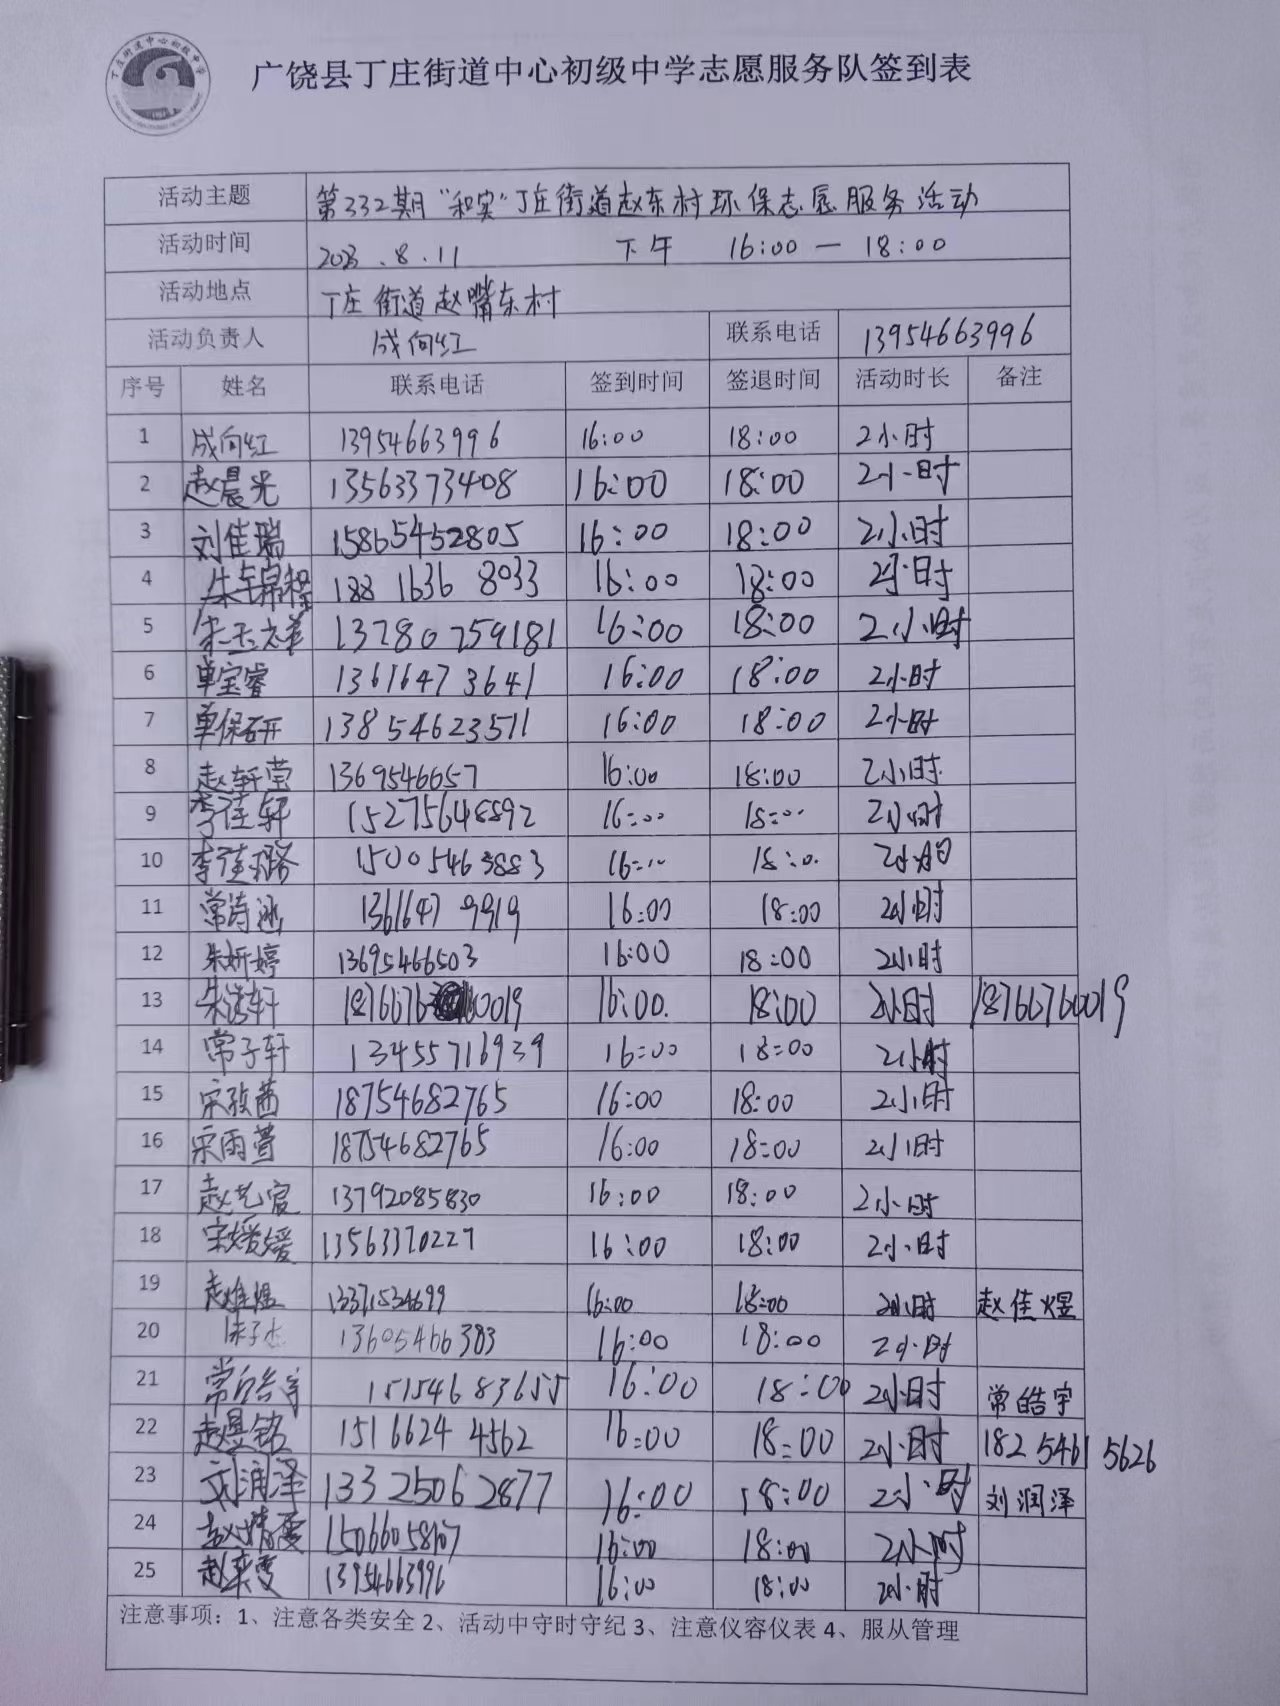 丁庄街道中心初级中学
广饶县丁庄街道中心初级中学志愿服务队签到表
活动主题 第332期“和实”丁庄街道赵东村环保志愿服务活动
活动时间 2023.8.11 下午 16:00—18:00
活动地点 丁庄街道赵嘴东村
活动负责人 成向红 联系电话 13954663996
序号 姓名 联系电话 签到时间 签退时间 活动时长 备注
1 成向红 13954663996 16:00 18:00 2小时
2 赵晨光 13563373408 16:00 18:00 2小时
3 刘佳瑞 15865452805 16:00 18:00 2小时
4 朱锦程 188 1636 8033 16:00 18:00 2小时
5 宋玉 13780759181 16:00 18:00 2小时
6 单宝睿 13616473641 16:00 18:00 2小时
7 单保研 13854623511 16:00 18:00 2小时
8 赵轩莹 1369546657 16:00 18:00 2小时
9 李佳轩 15275648892 16:00 18:00 2小时
10 李佳璐 15005463883 16:00 18:00 2小时
11 常诗涵 1361647 9919 16:00 18:00 2小时
12 朱妍婷 13695466503 16:00 18:00 2小时
13 朱浩轩 1876676 0019 16:00 18:00 2小时 18766760019
14 常子轩 13455716939 16:00 18:00 2小时
15 宋孜茜 18754682765 16:00 18:00 2小时
16 宋雨萱 18754682765 16:00 18:00 2小时
17 赵艺宸 13792085830 16:00 18:00 2小时
18 宋媛媛 13563370227 16:00 18:00 2小时
19 赵佳煜 13371534699 16:00 18:00 2小时 赵佳煜
20 朱子杰 13605466383 16:00 18:00 2小时
21 常皓宇 15154683655 16:00 18:00 2小时 常皓宇
22 赵昱铭 1516624 4562 16:00 18:00 2小时 182 5461 5626
23 刘润泽 133 2506 2877 16:00 18:00 2小时 刘润泽
24 赵靖雯 15066058107 16:00 18:00 2小时
25 赵奕雯 13954663996 16:00 18:00 2小时
注意事项：1、注意各类安全 2、活动中守时守纪 3、注意仪容仪表 4、服从管理